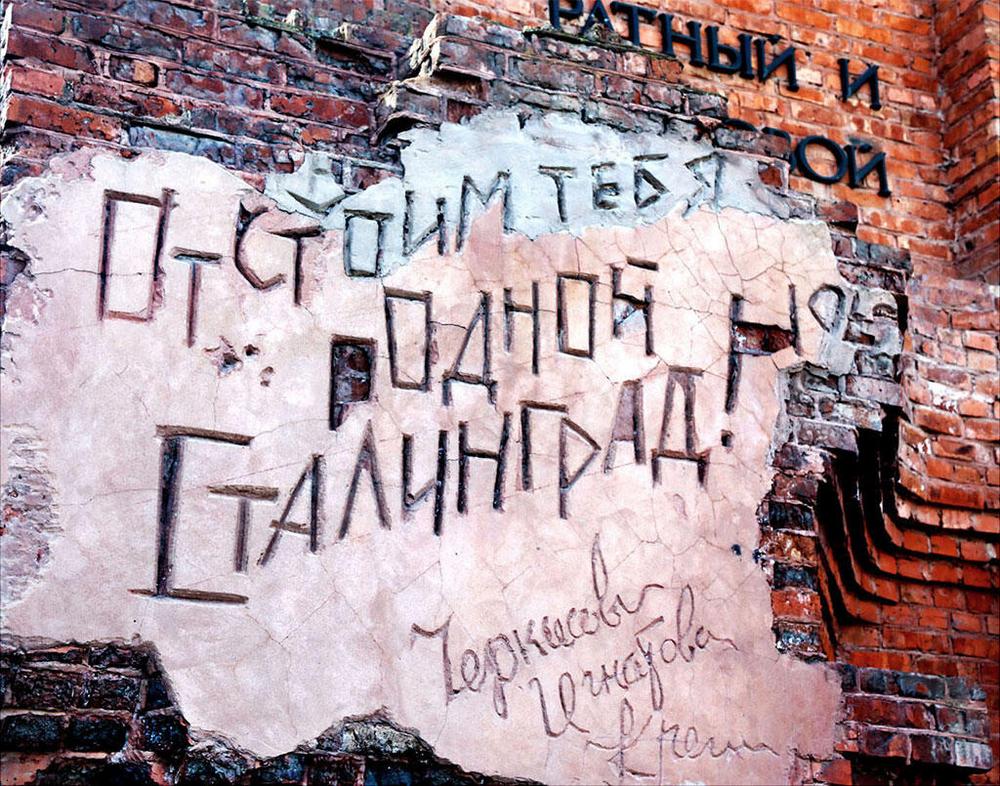 РАТНЫЙ И
ОТСТОИМ ТЕБЯ
РОДНОЙ НАШ
СТАЛИНГРАД!
Черкасова
Игнатова